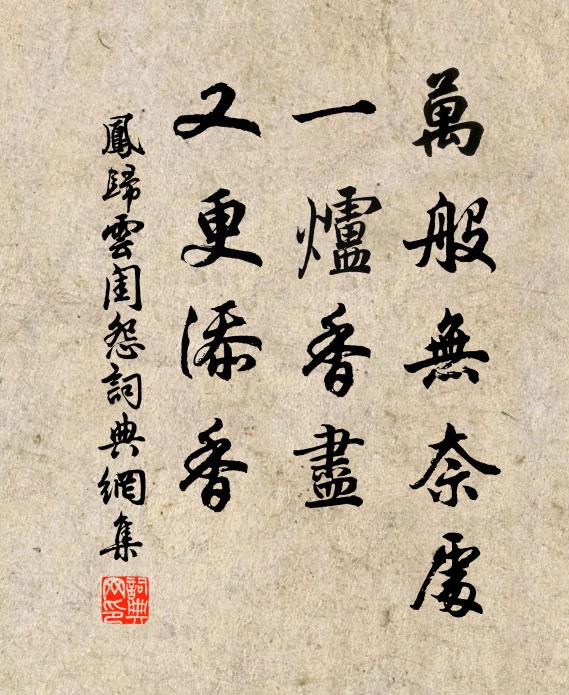 萬般無奈處
一爐香盡
又更添香
鳳歸雲閨怨詞典網集
詞典網印